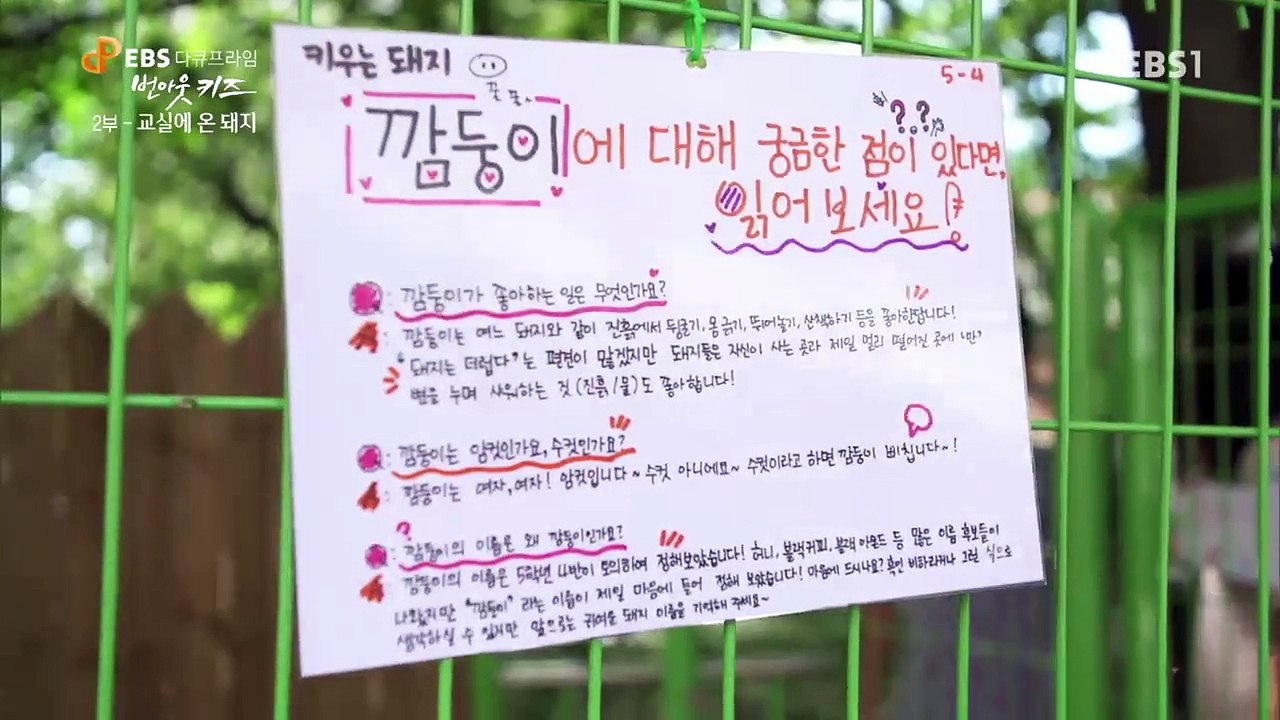 EBS 다큐프라임
번아웃 키즈
2부 - 교실에 온 돼지
EBS1
키우는 돼지
5-4
꿀 꿀~
깜둥이에 대해 궁금한 점이 있다면,
??
읽어보세요!
Q: 깜둥이가 좋아하는 일은 무엇인가요?
A: 깜둥이는 여느 돼지와 같이 진흙에서 뒹굴기, 몸 긁기, 뛰어놀기, 산책하기 등을 좋아한답니다!
"돼지는 더럽다"는 편견이 많겠지만 돼지들은 자신이 사는 곳과 제일 멀리 떨어진 곳에 '만'
변을 누며 샤워하는 것 (진흙/물)도 좋아합니다!
Q: 깜둥이는 암컷인가요, 수컷인가요?
A: 깜둥이는 여자, 여자! 암컷입니다~ 수컷 아니에요~ 수컷이라고 하면 깜둥이 삐칩니다~!
Q: 깜둥이의 이름은 왜 깜둥이인가요?
A: 깜둥이의 이름은 5학년 4반이 토의하여 정해보았습니다! 허니, 블랙커피, 블랙 아몬드 등 많은 이름 후보들이
나왔지만 "깜둥이" 라는 이름이 제일 마음에 들어 정해 보았습니다! 마음에 드시나요? 흑인 비하라거나 그런 식으로
생각하실 수 있지만 앞으로는 귀여운 돼지 이름을 기억해 주세요~